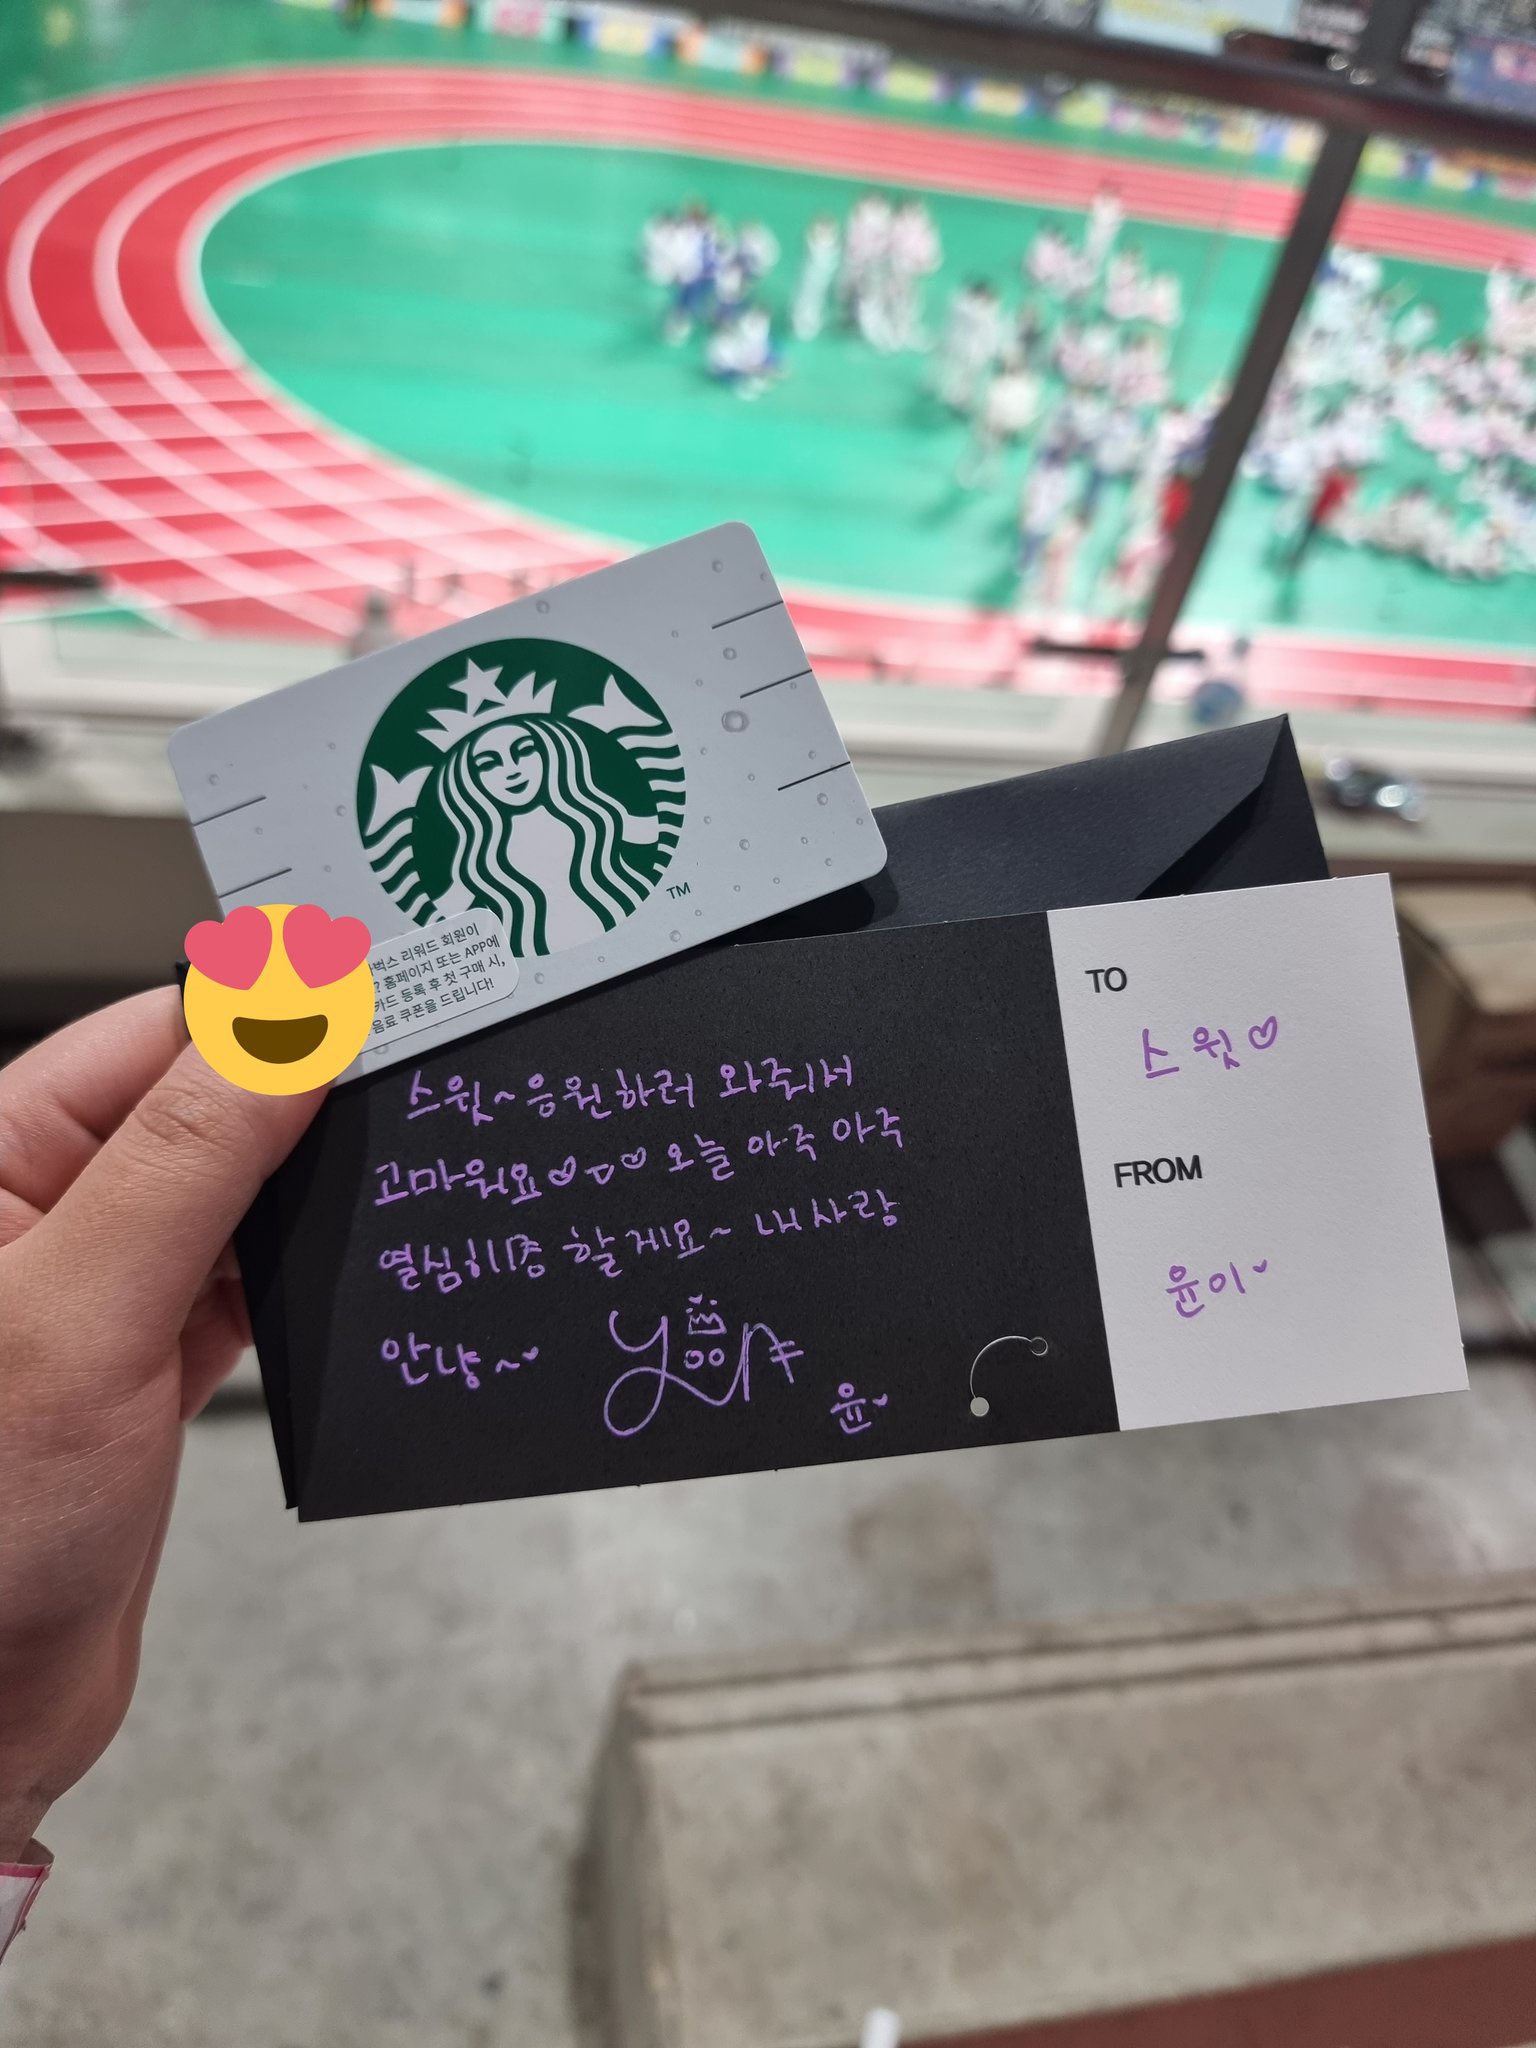 TM
벅스 리워드 회원이
? 홈페이지 또는 APP에
카드 등록 후 첫 구매 시,
음료 쿠폰을 드립니다!
TO
스윗♡
FROM
윤이
스윗~응원하러 와주셔서
고마워요♡ㅁ♡ 오늘 아주 아주
열심히 할게요~ 내사랑
안냥~
YooA
윤